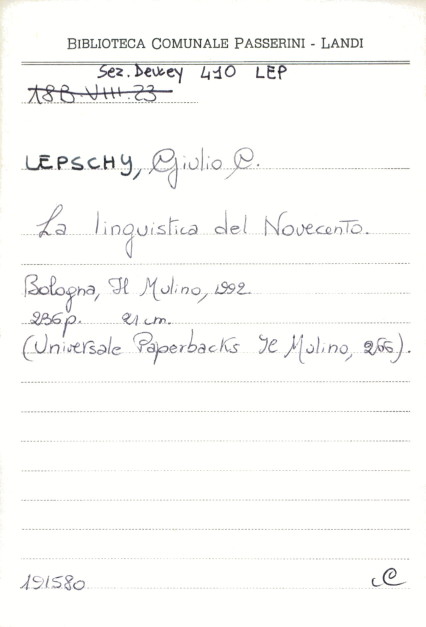 BIBLIOTECA COMUNALE PASSERINI - LANDI
Sez. Dewey 410 LEP
18B.VIII.23
LEPSCHY, Giulio C.
La linguistica del Novecento.
Bologna, Il Mulino, 1992.
236 p. 21 cm.
(Universale Paperbacks Il Mulino, 266).
191580
C